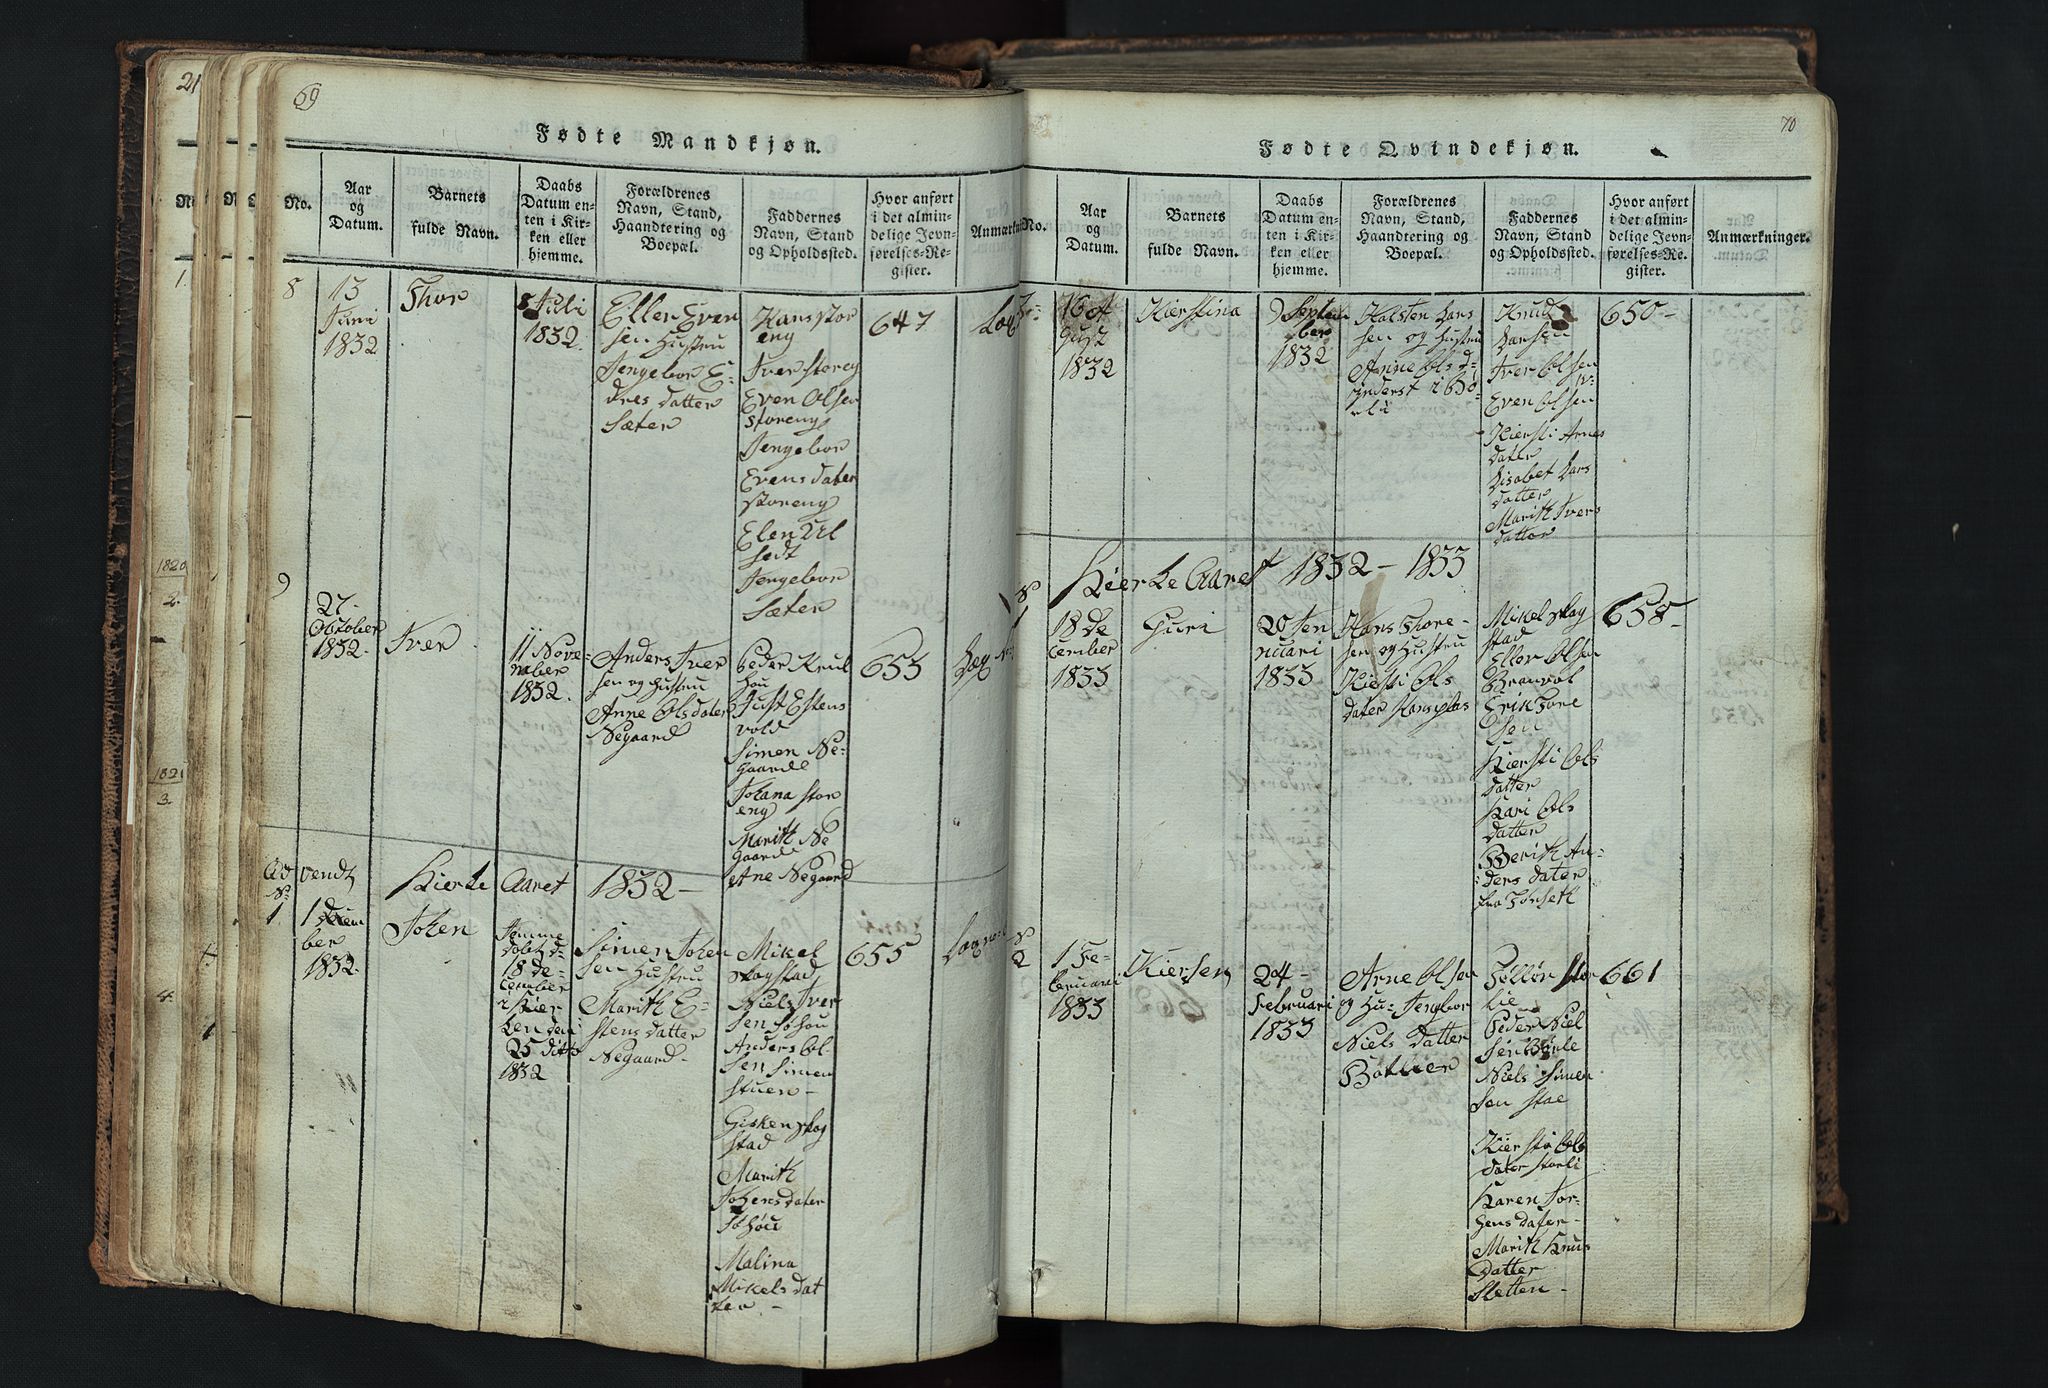 69
Fødte Mandkjøn.
No.
Aar
og
Datum.
Barnets
fulde Navn.
Daabs
Datum en-
ten i Kir-
ken eller
hjemme.
Forældrenes
Navn, Stand,
Haandtering og
Boepæl.
Faddernes
Navn, Stand
og Opholdssted.
Hvor anført
i det almin-
delige Jevn-
førelses-Re-
gister.
8
13
Juni
1832
Thor
8 Juli
1832.
Eller Even
sen Hustru
Jengebor E-
dres datter
Sæter
Hans stor
eng
Iver storeng
Even Olsen
storeng
Jengebor
Evens dater
storeng
Elen
Jengebor
Sæter
647
9
27.
October
1832.
Iver
11 Nove-
mber
1832.
Anders Iver
sen og Hustru
Anne Olsdater
Negaard
Peder
Just Estens
vold
Simen Ne-
gaarde
Johana stor
eng
Marith Ne
gaarde
Ane Negaard
653
Ad vendt Kierke Aaret 1832 -
No
1
1 decem
ber
1832.
Johen
Jemme
døbt d-
18 de-
cember
i Kier
ken den
25 ditto
1832
Simen Johen
sen Hustru
Marith E-
stens datter
Negaard-
Mikel
skogstad
Niels Iver
sen
Anders Ol-
sen Simen
stuen -
Gisken skog
stad
Marith
Johensdater
Malina
Mikels dat
ter -
655
70
Fødte Qvindekjøn.
No.
Aar
og
Datum.
Barnets
fulde Navn.
Daabs
Datum en-
ten i Kir-
ken eller
hjemme.
Forældrenes
Navn, Stand,
Haandtering og
Boepæl.
Faddernes
Navn, Stand
og Opholdssted.
Hvor anført
i det almin-
delige Jevn-
førelses-Re-
gister.
Anmærkninger.
16 A
gust
1832
Kierstina
9 Septem
ber
1832
Halsten Hans
sen og Hustru
Anne Ols d-
Knud
Hansen
Iver Olsen
Even Olsen
Kiersti Arnes
dater
Lisabet Lars
datter
Marith Ivers
datter
650-
Kierke Aaret 1832 - 1833
1
18 De
cember
1833
Guri
20 Jen
nuari
1833
Hans Thore-
sen og Hustru
Kiesti Ols
dater Hansplas
Mikel skog
stad
Eller Olsen
Erik Tore
sen
Kiersti Ols
datter
Kari Ols
datter
Berith An-
ders dater
fra
658-
2
1 Fe-
bruari
1833
Kiersen
24-
Februari
1833
Arne Olsen
og Hu: Jengbor
Niels Datter
Peder Niel
sen
Niels Simen
sen
Kiersti Ols
dater storli
Karen Tor-
hens dater-
Marith Knus
Datter
Sletten-
661